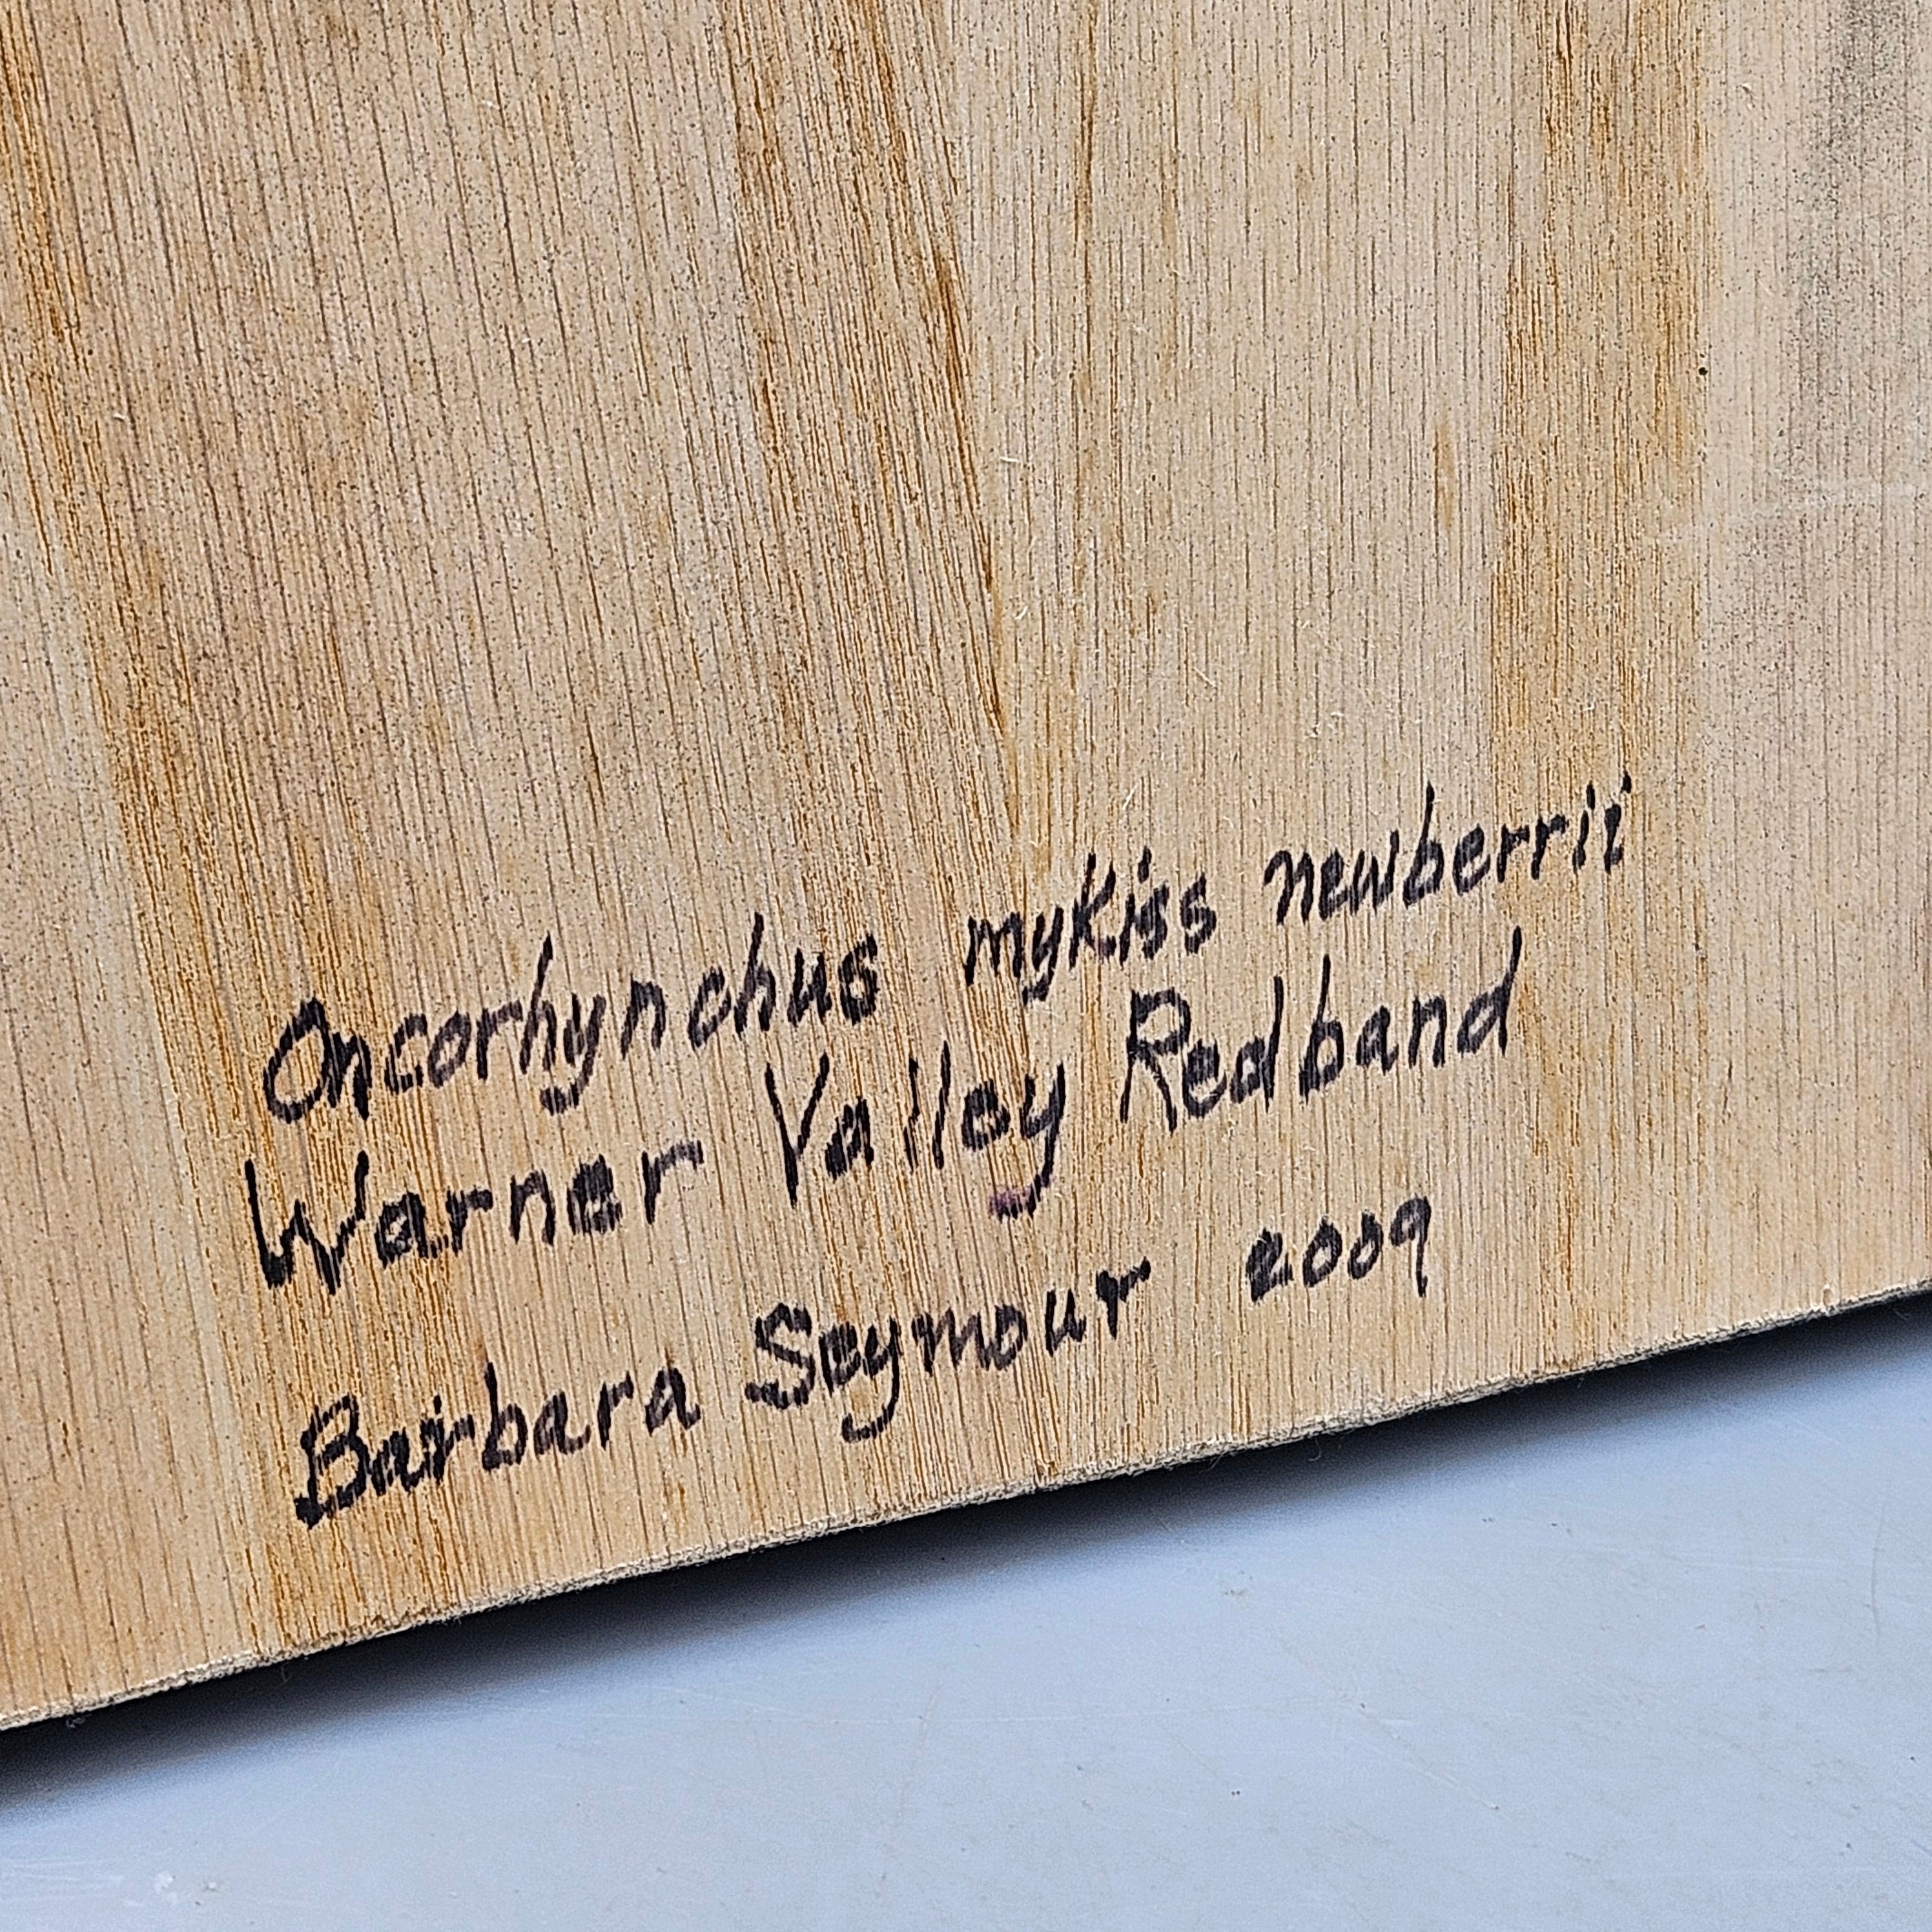 Oncorhynchus mykiss newberrii
Warner Valley Redband
Barbara Seymour 2009